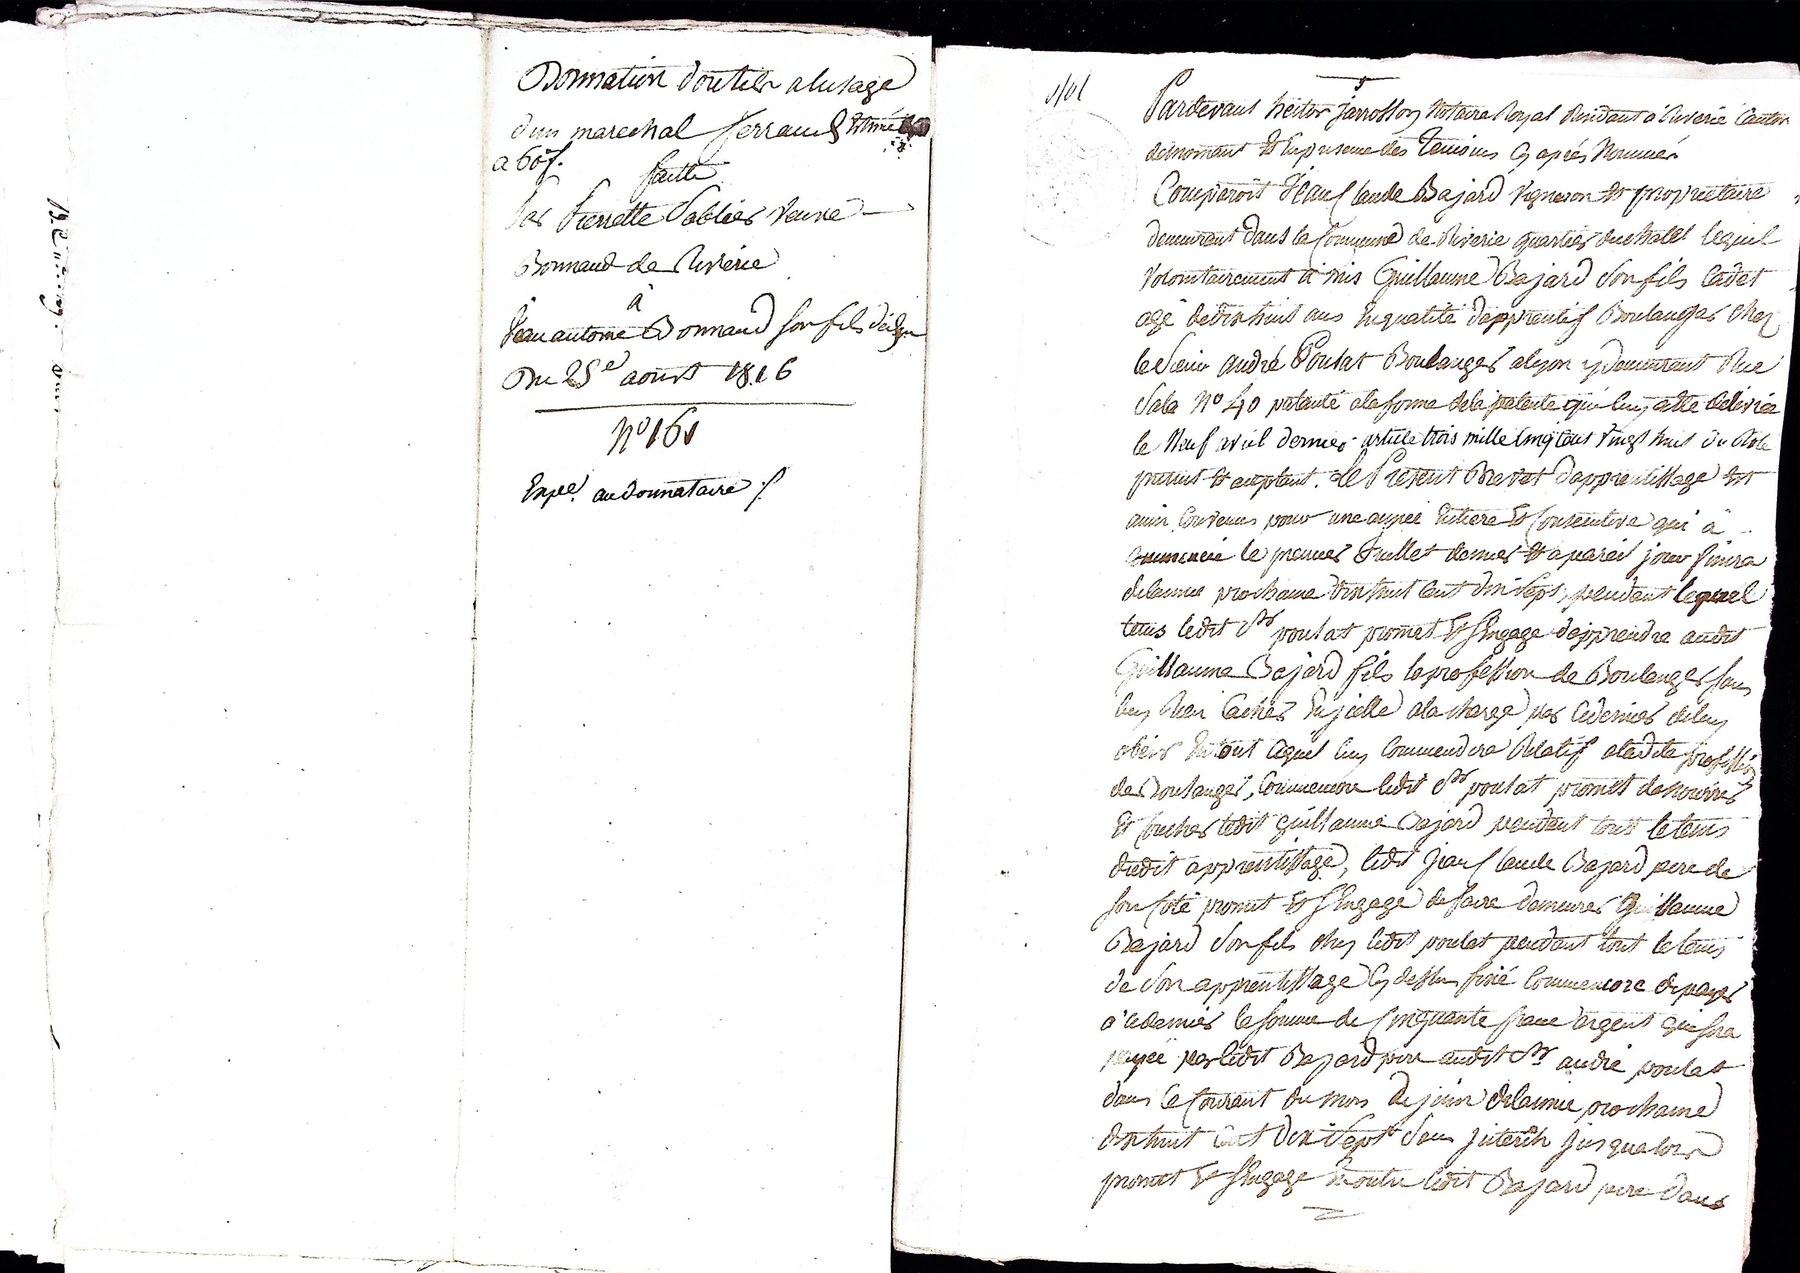 Donnation d'outils a lusage
dun marechal ferrand Estimé
a 60f.
faitte
Par Pierrette Sablier veuve
Bonnand de Riverie
à
Jean antoine Bonnand son fils
Du 25e aoust 1816
No 161
Expé. au donnataire
Pardevant hector jarrosson Notaire Royal Résidant à Riverie Canton
demornant Et En presence des Temoins cy après Nommés
Comparoit Jean Claude Bajard vigneron Et propriétaire
demeurant dans la Commune de Riverie quartier duchatel lequel
volontairement à mis Guillaume Bajard Son fils Cadet
agé dedixhuit ans En qualité d'apprentif Boulanger chez
le Sieur andré Poulat Boulanger alyon y demeurant Rue
Sala No 40 patenté ala forme dela patente qui luy a été délivrée
le Neuf avril dernier article trois mille Cinq Cent vingt huit du Role
Le Present Brevet dapprentissage Est
ainsi Convenu pour une année Entiere Et Consecutive qui à
commencé le premier Juillet dernier Et apareil jour finira
delannée prochaine dixhuit cent dix Sept, pendant lequel
tems ledit Sr poulat promet Et S'Engage d'apprendre audit
Guillaume Bajard fils la profession de Boulanger sans
luy Rien Cacher En jcelle ala charge par cedernier deluy
obéir En tout cequil luy Commendera Relatif aladite profession
de Boulanger, Commencore ledit Sr poulat promet denourrir
Et coucher ledit Guillaume Bajard pendant tout le tems
dudit apprentissage, ledit Jean Claude Bajard pere de
son Coté promet Et S'Engage defaire demeurer Guillaume
Bajard Son fils chez ledit poulat pendant tout le tems
de Son apprentissage Cy dessus fixé Commencore depayer
à cedernier la somme de Cinquante franc argent qui sera
payée par ledit Bajard pere audit Sr andré poulat
dans le Courant du mois de juin delannée prochaine
dixhuit Cent dix Sept Sans jnterêt jusqualors
promet Et S'Engage Enoutre ledit Bajard pere dans